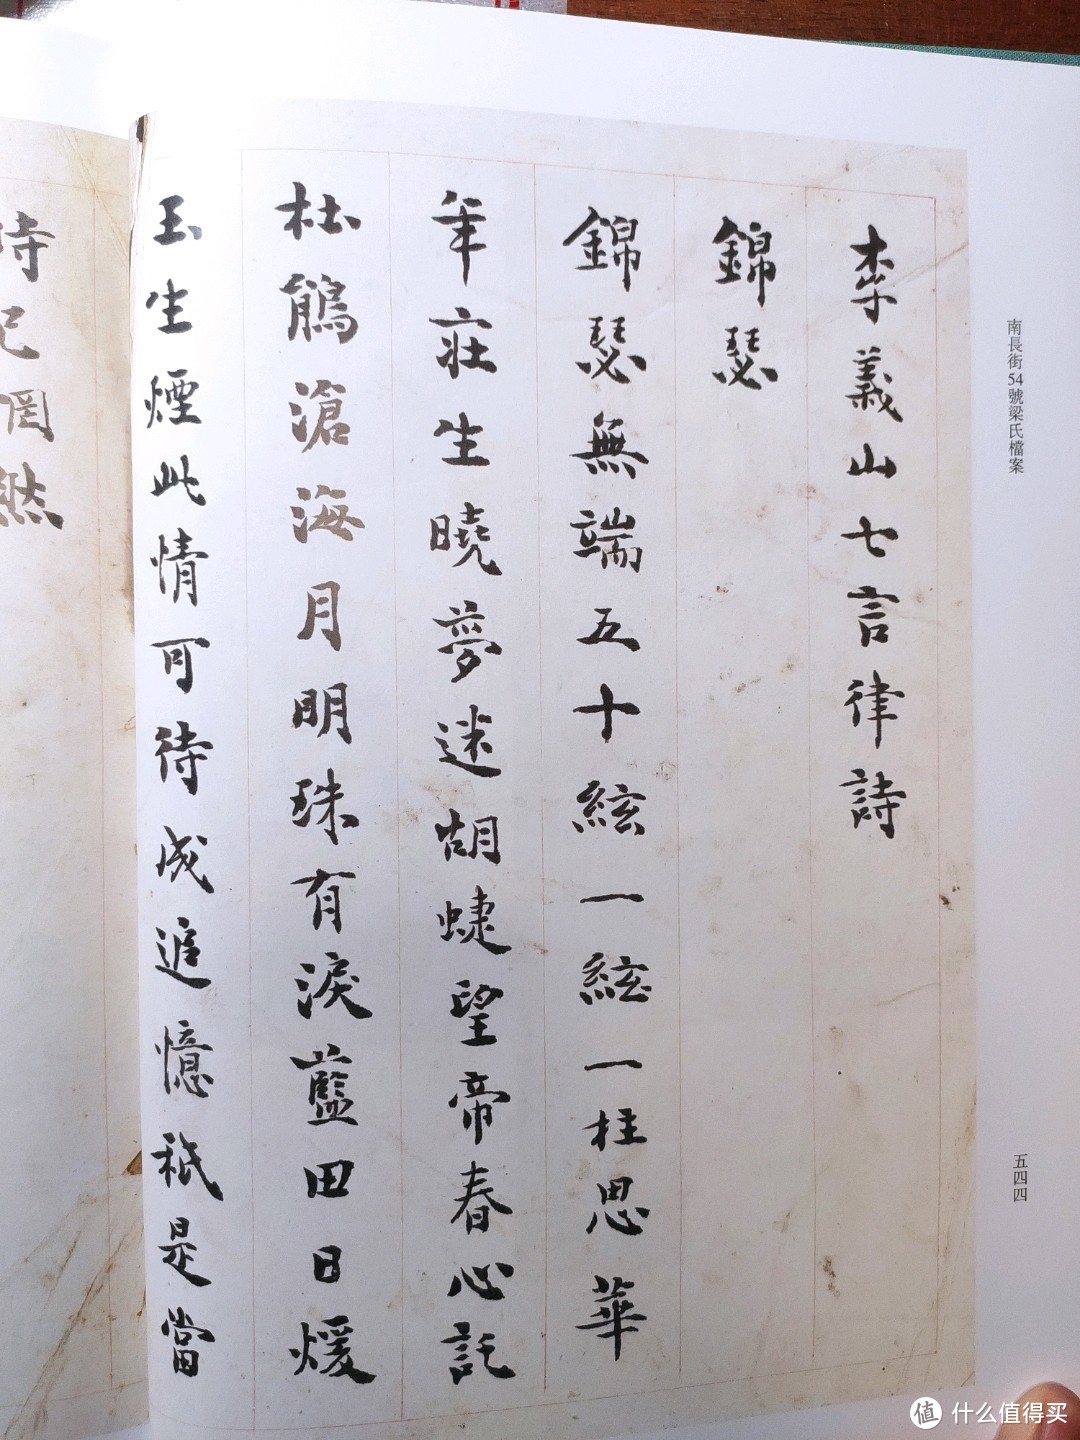 李義山七言律詩
錦瑟
錦瑟無端五十絃一絃一柱思華
年莊生曉夢迷胡蜨望帝春心託
杜鵑滄海月明珠有淚藍田日煖
玉生煙此情可待成追憶祇是當
時已罔然
南長街54號梁氏檔案
五四四
值 什么值得买